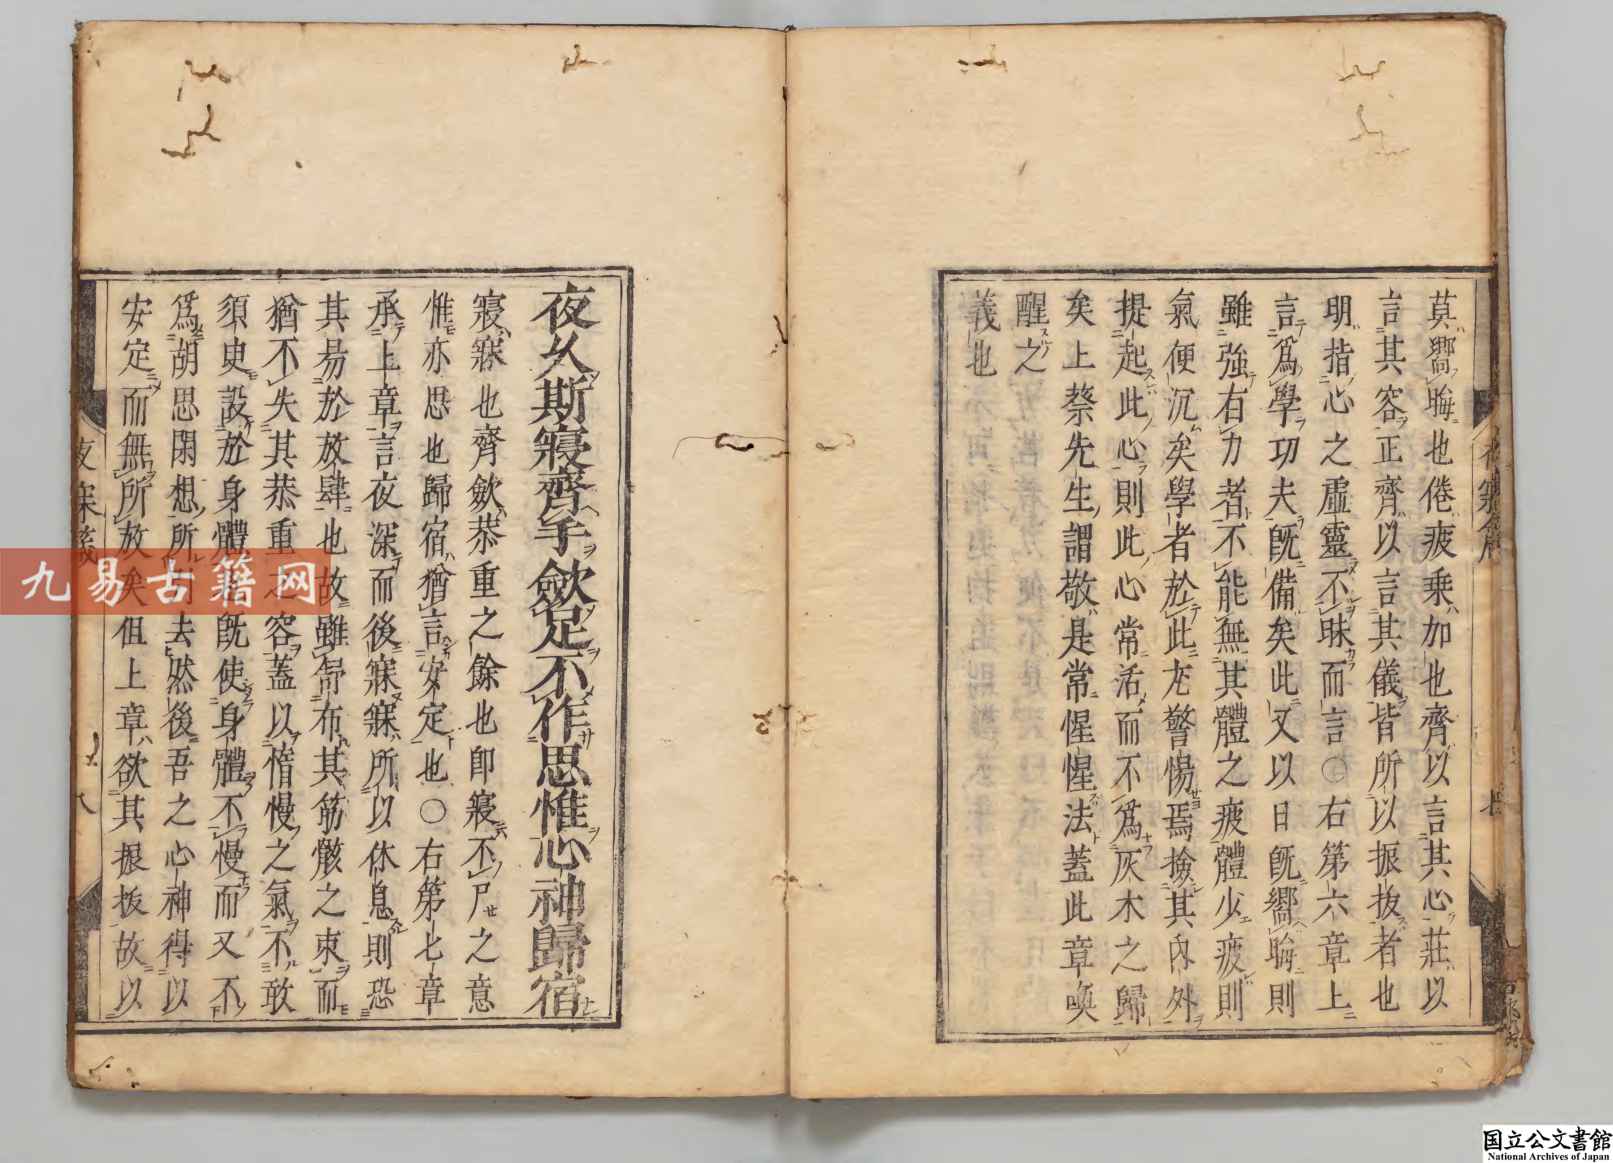 莫嚮晦也倦疲乗加也齊以言其心莊以
言其容正齊以言其儀皆所以振拔者也
明指心之虛靈不昧而言○右第六章上
言爲學功夫既備矣此又以日既嚮晦則
雖強有力者不能無其體之疲體少疲則
氣便沉矣學者於此尤警惕焉撿其內外
提起此心則此心常活而不爲灰木之歸
矣上蔡先生謂敬是常惺惺法蓋此章喚
醒之
義也
夜久斯寢齊手斂足不作思惟心神歸宿
寢寐也齊斂恭重之餘也即寢不尸之意
惟亦思也歸宿猶言安定也○右第七章
承上章言夜深而後寐寐所以休息則恐
其易於放肆也故雖舒布其筋骸之束而
猶不失其恭重之容蓋以惰慢之氣不敢
須臾設於身體旣使身體不慢而又不
爲胡思閑想所去然後吾之心神得以
安定而無所放矣但上章欲其振拔故以
九易古籍网
国立公文書館
National Archives of Japan